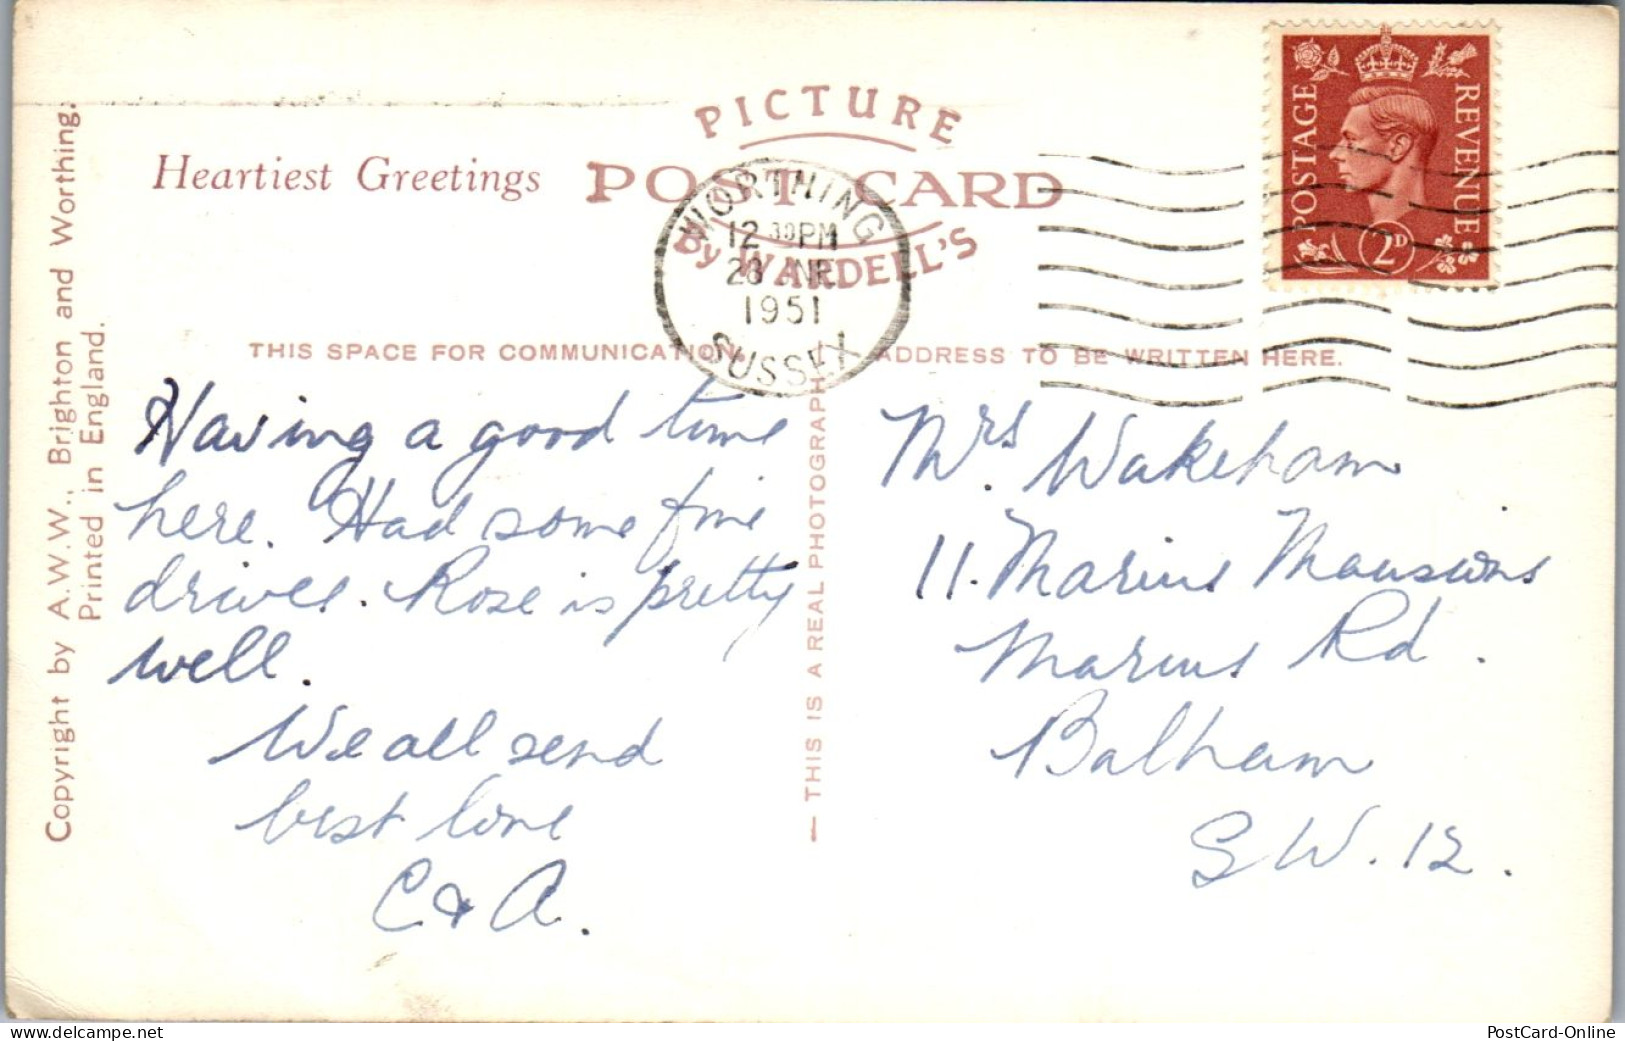 PICTURE
Heartiest Greetings
POST CARD
By WARDELL'S
POSTAGE
REVENUE
2D
WORTHING
12 30 PM
28 JNE
1951
SUSSEX
Copyright by A.W.W., Brighton and Worthing.
Printed in England.
THIS SPACE FOR COMMUNICATION.
ADDRESS TO BE WRITTEN HERE.
— THIS IS A REAL PHOTOGRAPH
Having a good time
here. Had some fine
drives. Rose is pretty
well.
We all send
best love
C & A.
Mrs. Wakeham
11. Marius Mansions
Marius Rd.
Balham
S.W.12.
www.delcampe.net
PostCard-Online